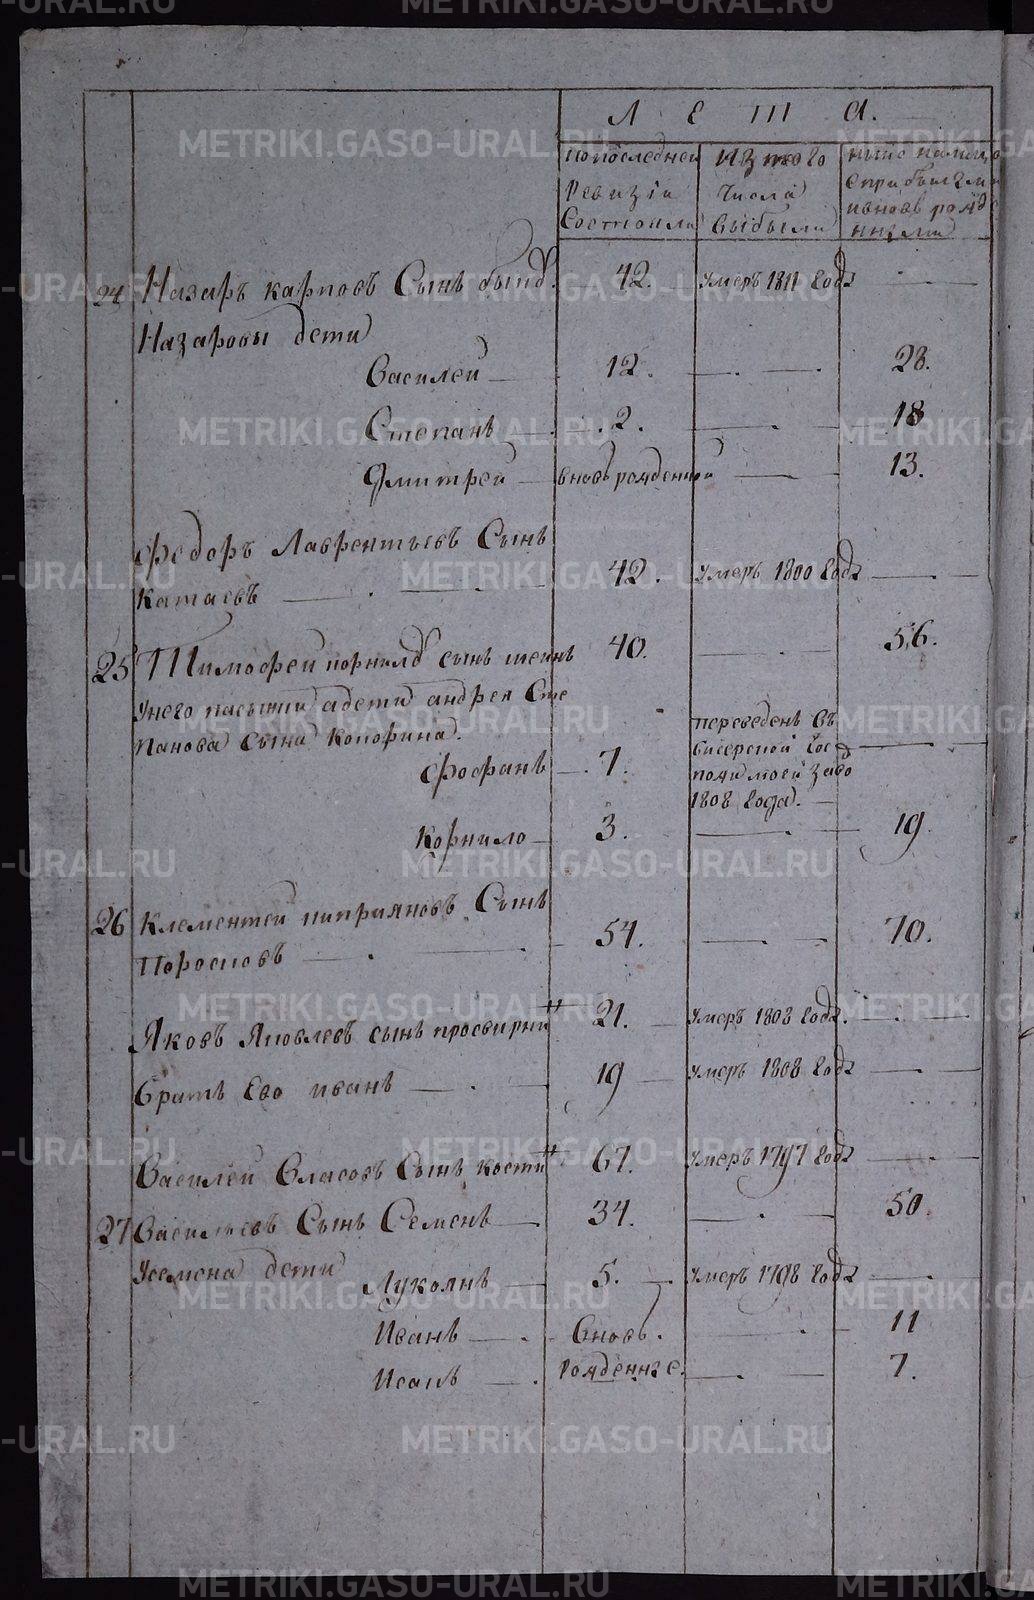 Л Е Т А.
по последней ревизіи состояли
из того числа выбыли
ныне на лицо с прибылыми и вновь рожденными
24 Назаръ карповъ Сынъ 42. умеръ 1811 года
Назаровы дети
Василей 12. 28.
Степанъ 2. 18
Дмитрей вновь рожденной 13.
Федоръ Лаврентьевъ Сынъ
Катаевъ 42. умеръ 1800 года
25 Тимофей корнилов сынъ шеинъ 40. 56.
Унего пасынки а дети андрея Сте
панова Сына Копорина.
Фофанъ 7. переведенъ въ
бисерской гос
пожи моей заво
1808 года.
Корнило 3. 19.
26 Климентей киприяновъ Сынъ
Поросковъ 54. 70.
Яковъ Яковлевъ сынъ просвирни 21. умеръ 1808 года.
братъ Ево иванъ 19 умеръ 1808 года
Василей Власовъ Сынъ 67. умеръ 1797 года
27 Васильевъ Сынъ Семенъ 34. 50.
Усемена дети
Лукоянъ 5. умеръ 1798 года
Иванъ вновь. 11
Исакъ рожденные. 7.
METRIKI.GASO-URAL.RU